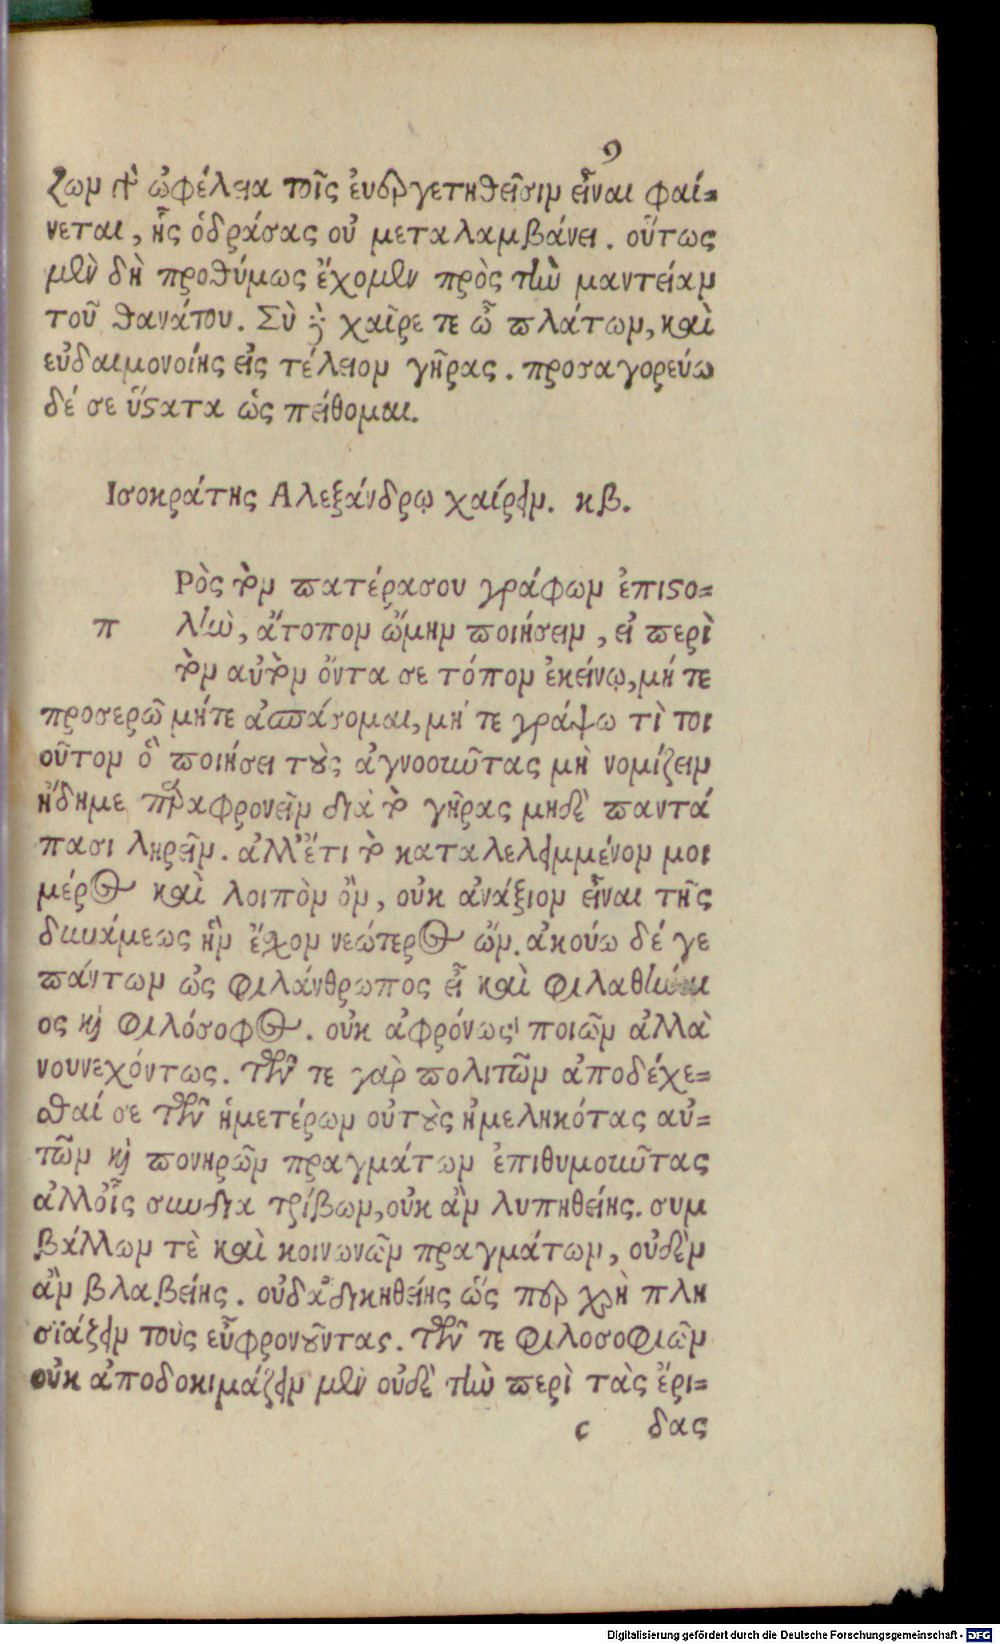 9
ζων ἡ ὠφέλεια τοῖς ἐυεργετηθεῖσιν εἶναι φαί=
νεται, ἧς ὁδράσας οὐ μεταλαμβάνει. οὕτως
μὲν δὴ προθύμως ἔχομεν πρὸς τὴν μαντείαν
τοῦ θανάτου. Σὺ δὲ χαῖρε τε ὦ πλάτων, καὶ
εὐδαιμονοίης εἰς τέλειον γῆρας. προσαγορεύω
δέ σε ὕστατα ὡς πείθομαι.
Ισοκράτης Αλεξάνδρῳ χαίρειν. κβ.
Ρὸς τὸν πατέρασου γράφων ἐπιστο=
π λὴν, ἄτοπον ᾤμην ποιήσειν, εἰ περὶ
τὸν αὐτὸν ὄντα σε τόπον ἐκείνῳ, μή τε
προσερῶ μήτε ἀσπάσομαι, μή τε γράψω τὶ τοι
οῦτον ὃ ποιήσει τοὺς ἀγνοοῦντας μὴ νομίζειν
ἤδημε παραφρονεῖν διὰ τὸ γῆρας μηδὲ παντά
πασι ληρεῖν. ἀλλ' ἔτι τὸ καταλελειμμένον μοι
μέρος καὶ λοιπὸν ὂν, οὐκ ἀνάξιον εἶναι τῆς
δυνάμεως ἣν ἔχον νεώτερος ὤν. ἀκούω δέ γε
πάντων ὡς φιλάνθρωπος εἶ καὶ φιλαθήναι
ος καὶ φιλόσοφος. οὐκ ἀφρόνως ποιῶν ἀλλὰ
νουνεχόντως. τῶν τε γὰρ πολιτῶν ἀποδέχε=
σθαί σε τῶν ἡμετέρων οὐ τοὺς ἠμεληκότας αὑ=
τῶν καὶ πονηρῶν πραγμάτων ἐπιθυμοῦντας
ἀλλ' οἷς συνδια τρίβων, οὐκ ἂν λυπηθείης. συμ
βάλλων τὲ καὶ κοινωνῶν πραγμάτων, οὐδὲν
ἂν βλαβείης. οὐδ' ἀδικηθείης ὥς περ χρὴ πλη
σϊάζειν τοὺς εὖφρονοῦντας. τῶν τε φιλοσοφιῶν
οὐκ ἀποδοκιμάζειν μὲν οὐδὲ τὴν περὶ τὰς ἔρι=
c δας
Digitalisierung gefördert durch die Deutsche Forschungsgemeinschaft - DFG